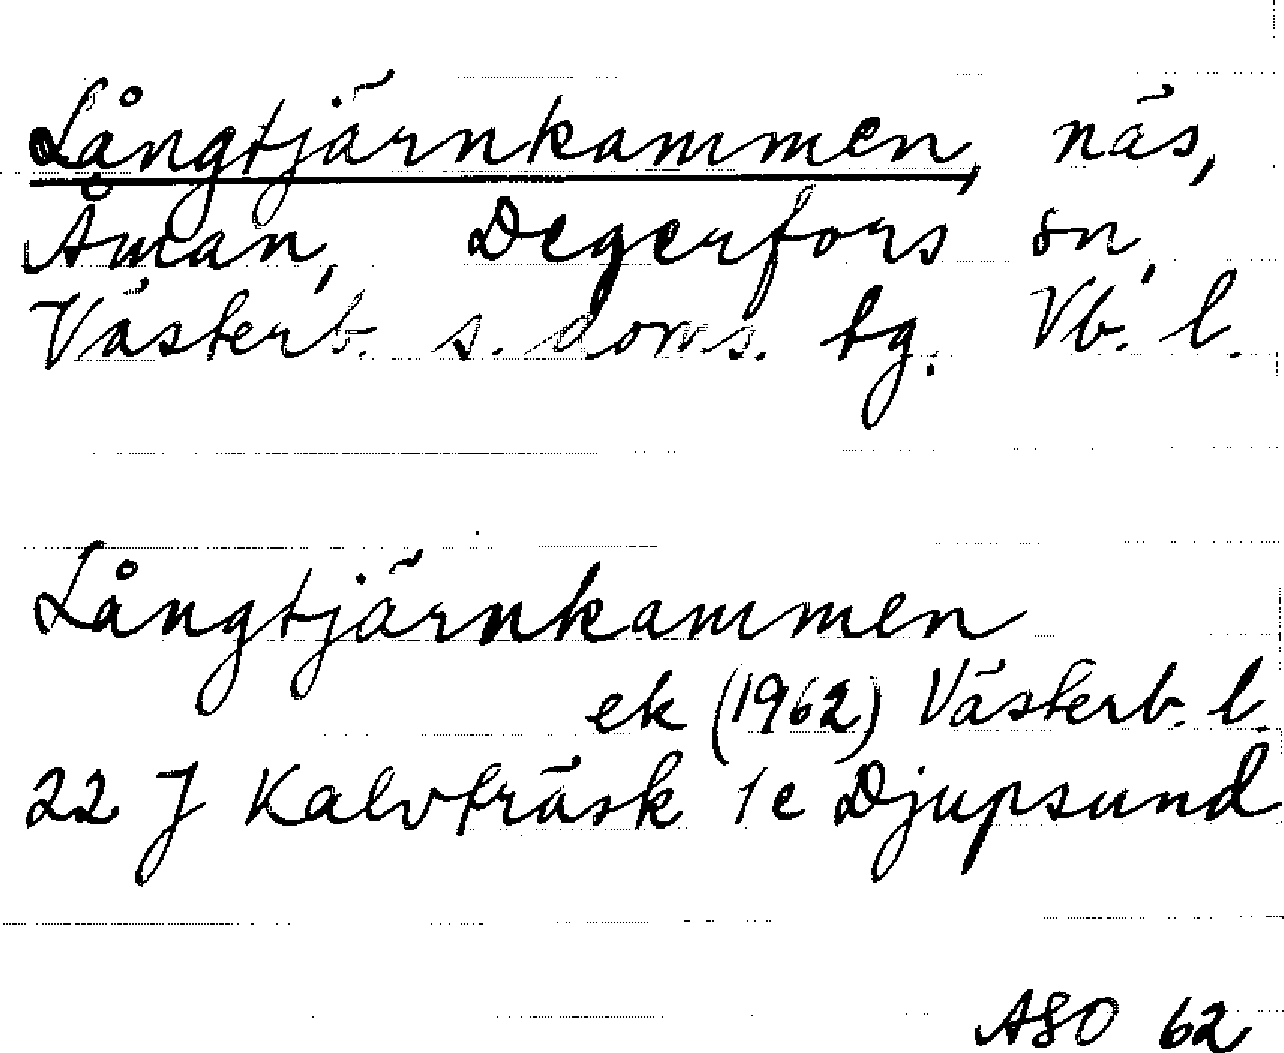 Långtjärnkammen, näs,
Åman, Degerfors sn,
Västerb. s. doms. tg. Vb. l.
Långtjärnkammen
ek (1962) Västerb. l.
22 J Kalvträsk 1e Djupsund
ASO 62